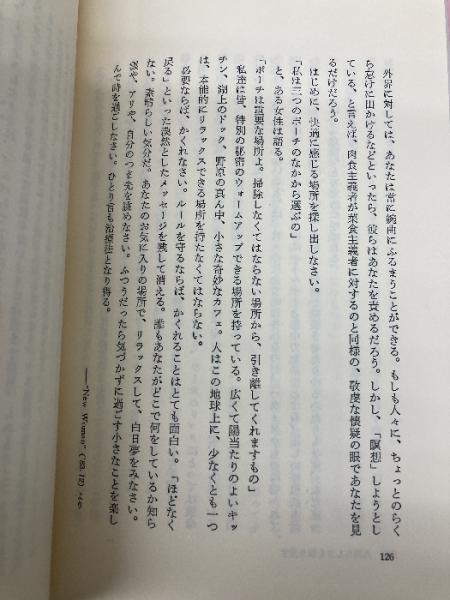 外界に対しては、あなたは常に婉曲にふるまうことができる。もしも人々に、ちょっとのらく
ら怠けに出かけるなどといったら、彼らはあなたを責めるだろう。しかし、「瞑想」しようとし
ている、と言えば、肉食主義者が菜食主義者に対するのと同様の、敬虔な懐疑の眼であなたを見
るだけだろう。
はじめに、快適に感じる場所を探し出しなさい。
「私は三つのポーチのなかから選ぶの」
と、ある女性は語る。
「ポーチは重要な場所よ。掃除しなくてはならない場所から、引き離してくれますもの」
私達は皆、特別の秘密のウォームアップできる場所を持っている。広くて陽当たりのよいキッ
チン、湖上のドック、野原の真ん中、小さな奇妙なカフェ。人はこの地球上に、少なくとも一つ
は、本能的にリラックスできる場所を持たなくてはならない。
必要ならば、かくれなさい。ルールを守るならば、かくれることはとても面白い。「ほどなく
戻る」といった漠然としたメッセージを残して消える。誰もあなたがどこで何をしているか知ら
ない。素晴らしい気分だ。あなたのお気に入りの場所で、リラックスして、白日夢をみなさい。
空や、アリや、自分のつま先を眺めなさい。ふつうだったら気づかずに過ごす小さなことを楽し
んで時を過ごしなさい。ひとり言も治療法となり得る。
——"New Woman" ('83, 12)
126